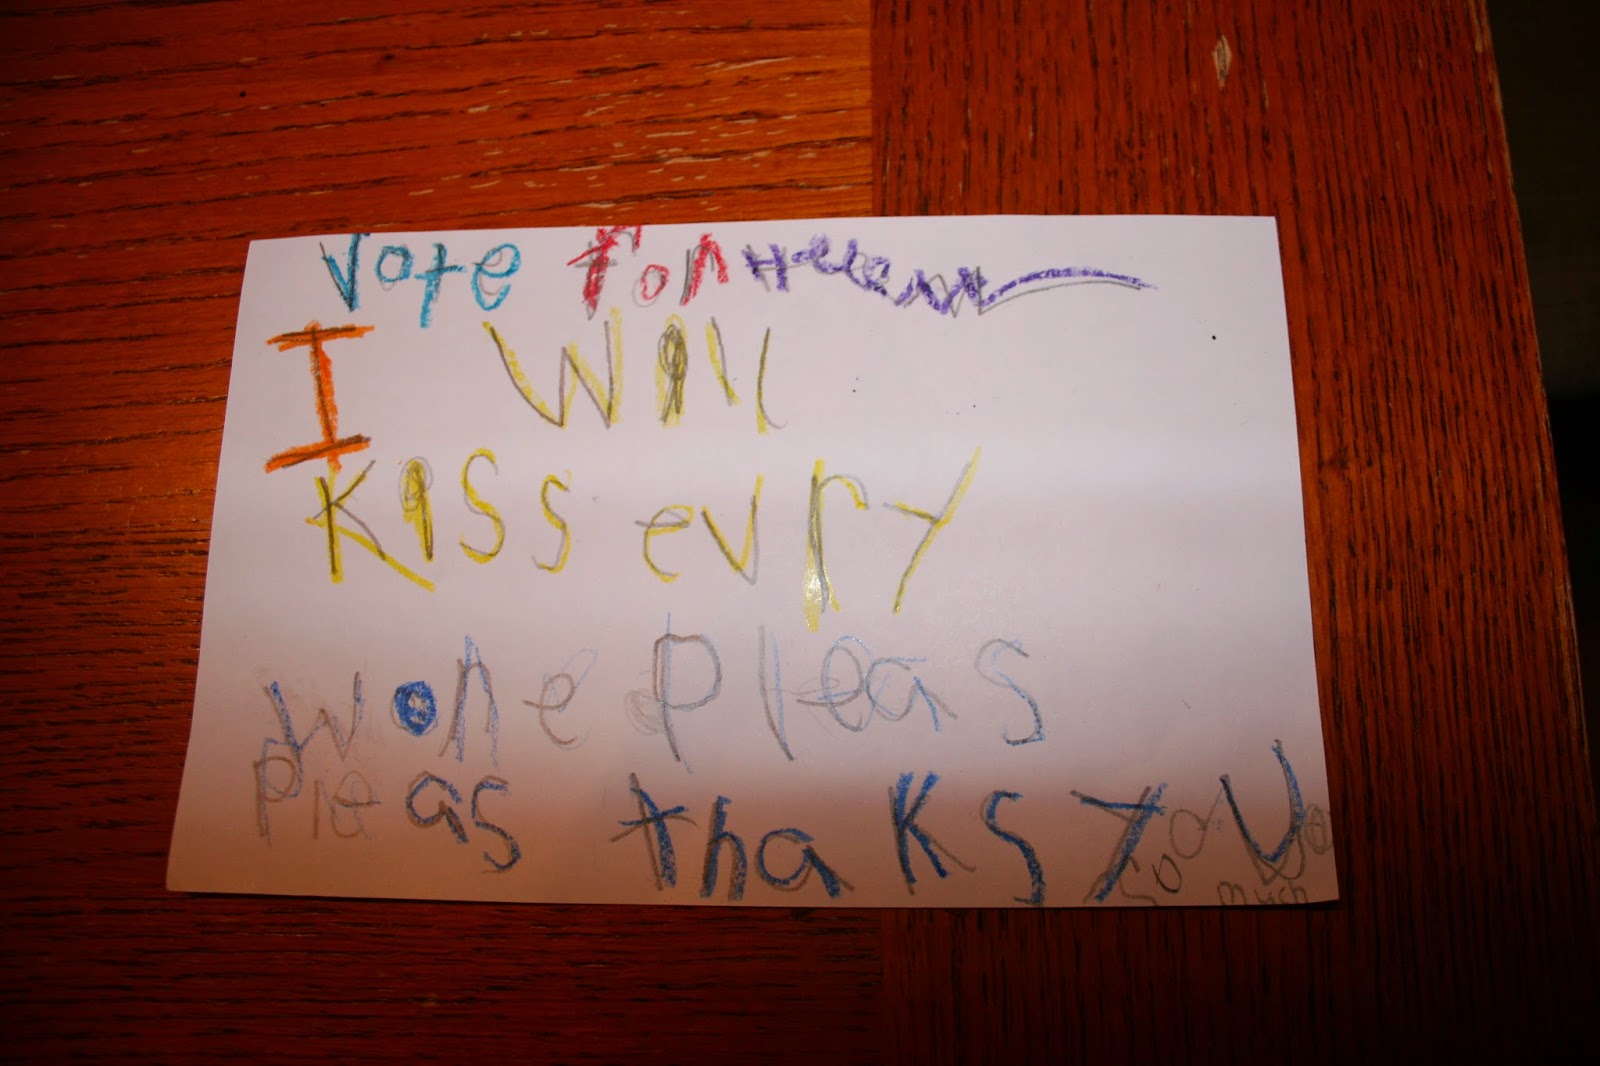 Vote for
I Will
Kiss evry
wone Pleas
Pleas thaKs YoU
so much